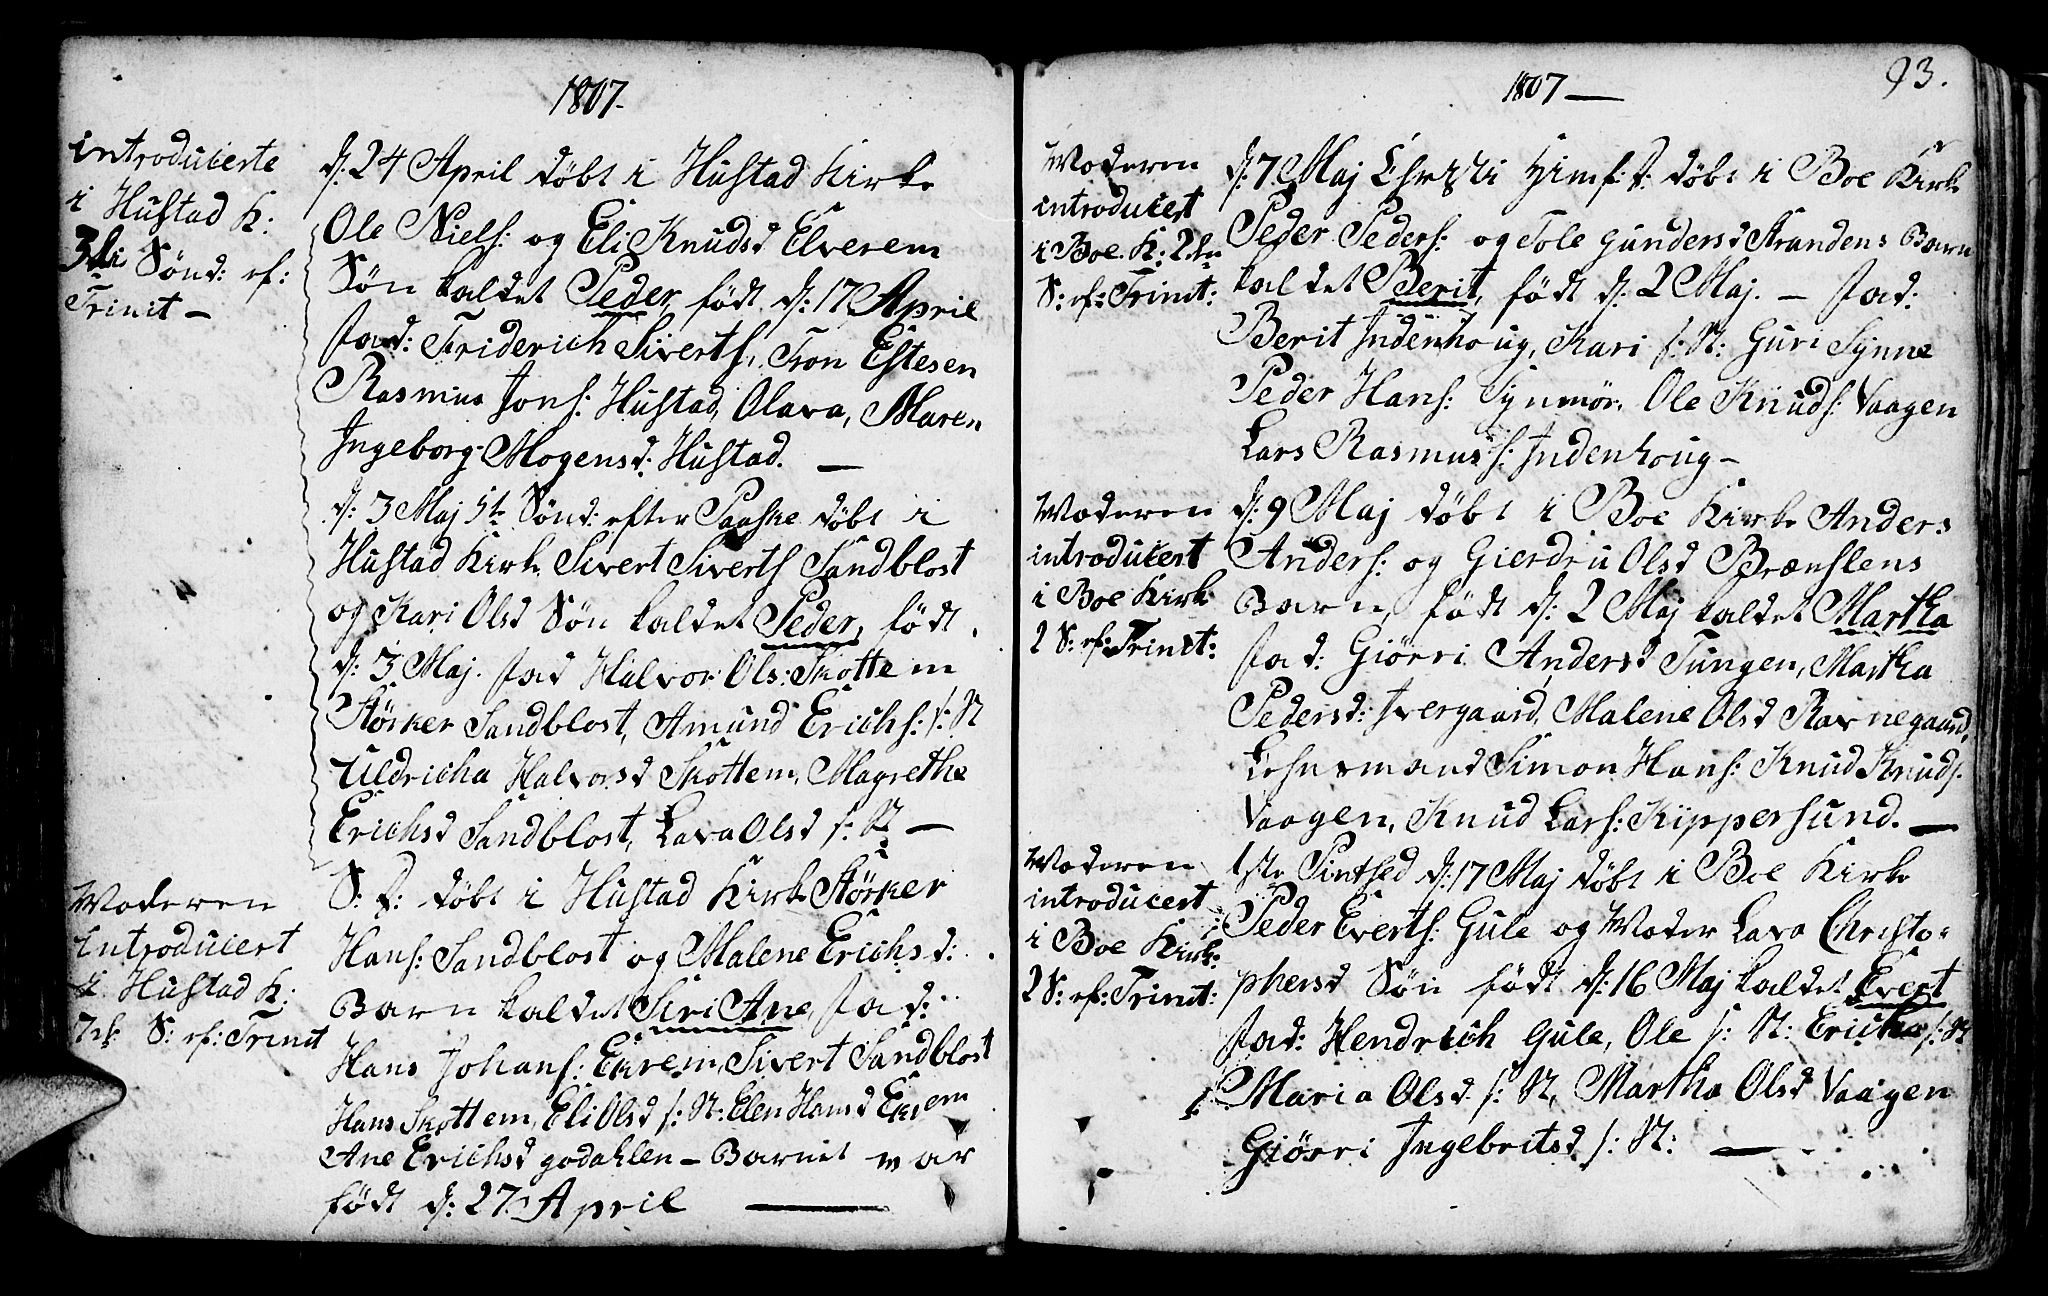 1807.
introducerte
i Hustad K:
3die Sønd: ef:
Trinit –
d: 24 April døbt i Hustad Kirke
Ole Niels: og Eli Knudsd Elverem
Søn kaldet Peder, født d: 17 April
fad: Friderich Siverts, Tron Estesen
Rasmus Jons: Hustad, Olava, Maren
Ingeborg Mogensd: Hustad. —
d: 3 Maj 5te Sønd: efter Paaske døbt i
Hustad Kirke Sivert Siverts Sandblost
og Kari Olsd Søn kaldet Peder, født
d: 3 Maj. fad Halvor Ols: Skottem
Størker Sandblost, Amund Erichs: s: St
Uldricha Halvorsd Skottem, Magrethe
Erichsd Sandblost, Lava Olsd s: St —
Moderen
introducert
i Hustad K:
7de S: ef: Trinit
S: D: døbt i Hustad Kirke Størker
Hans: Sandblost og Malene Erichsd:
Barn kaldet Siri Ane, fad:
Hans Johans: Ekrem, Sivert Sandblost
Hans Skottem, Eli Olsd s: St: Elen Hansd Ekrem
Ane Erichsd Godahlen – Barnet var
født d: 27 April —
1807 —
93.
Moderen
introducert
i Boe K: 2den
S: ef: Trinit:
d: 7 Maj Christi Himf: D: døbt i Boe Kirke
Peder Peders: og Tole Gundersd Strandens Barn
kaldet Berit, født d: 2 Maj. – fad:
Berit Indenhoug, Kari s: St: Guri Synne
Peder Hans: Synmør, Ole Knuds: Vaagen
Lars Rasmus: Indenhoug –
Moderen
introducert
i Boe Kirke
2 S: ef: Trinit:
d: 9 Maj døbt i Boe Kirke Anders
Anders: og Gierdru Olsd Brænslens
Barn, født d: 2 Maj kaldet Martha
fad: Giørri Andersd Tungen, Martha
Pedersd: Ivergaard, Malene Olsd Ravnegaard,
Lehnsmand Simon Hans: Knud Knuds:
Vaagen, Knud Lars: Kippersund. —
Moderen
introducert
i Boe Kirke
2 S: ef: Trinit:
1ste Pintsed d: 17 Maj døbt i Boe Kirke
Peder Everts: Gule og Moder Lava Christo=
phersd Søn født d: 16 Maj kaldet Evert
fad: Hendrich Gule, Ole s: St: Ericha s: St
Maria Olsd s: St, Martha Olsd Vaagen
Giørri Ingebritsd s: St: —